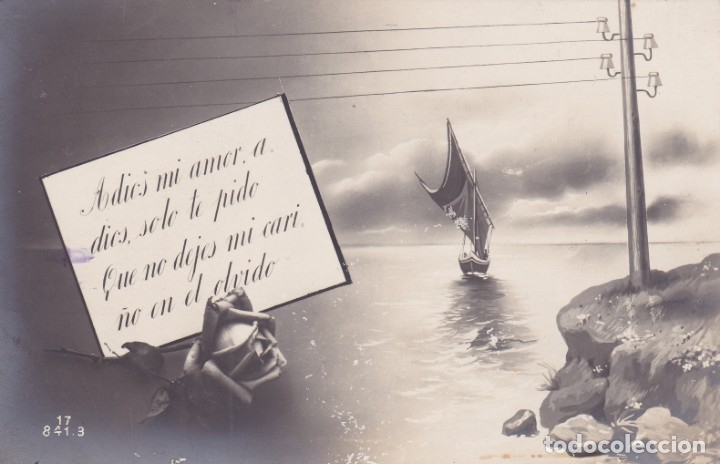 Adios mi amor, a
dios, solo te pido
Que no dejes mi cari
ño en el olvido
17
841.3
todocoleccion